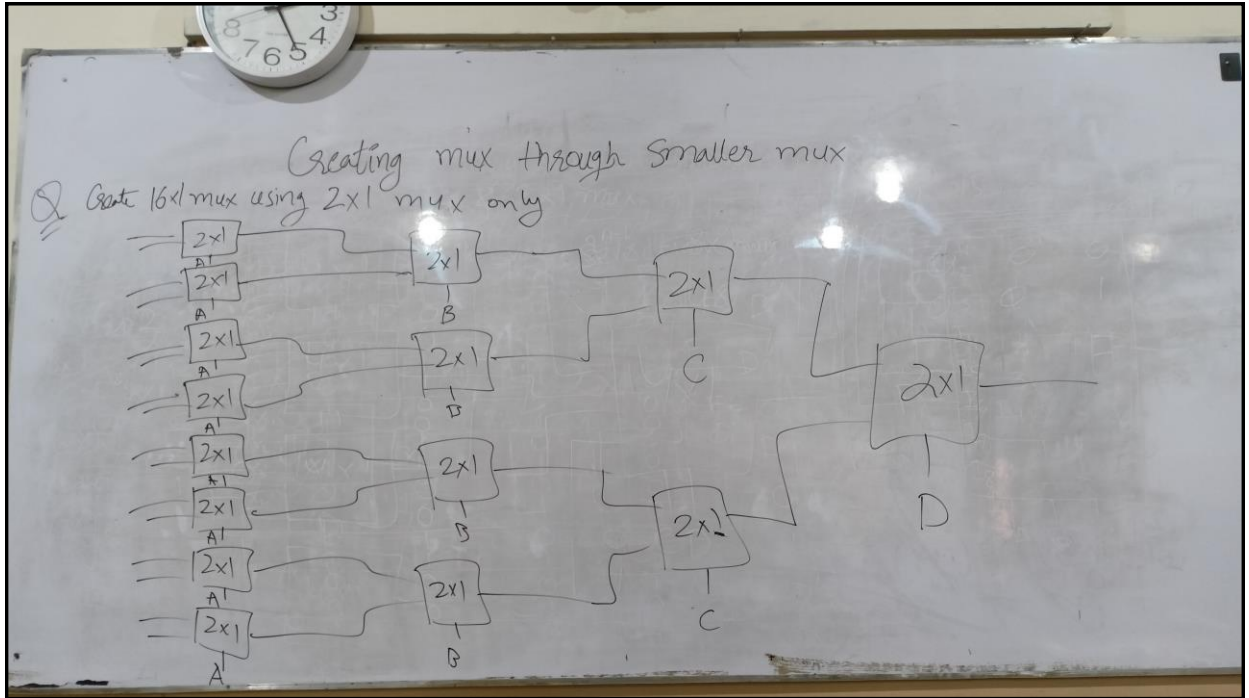 8 7 6 5 4 3
Creating mux through smaller mux
Q Create 16x1 mux using 2x1 mux only
2x1
A
2x1
A
2x1
A
2x1
A
2x1
A
2x1
A
2x1
A
2x1
A
2x1
B
2x1
B
2x1
B
2x1
B
2x1
C
2x1
C
2x1
D